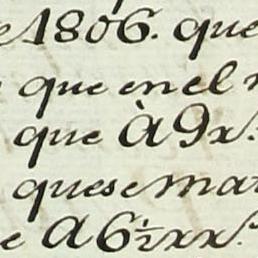 e 1806. que
que en el
que À 9x.
quese mat
e A 6½ xx.